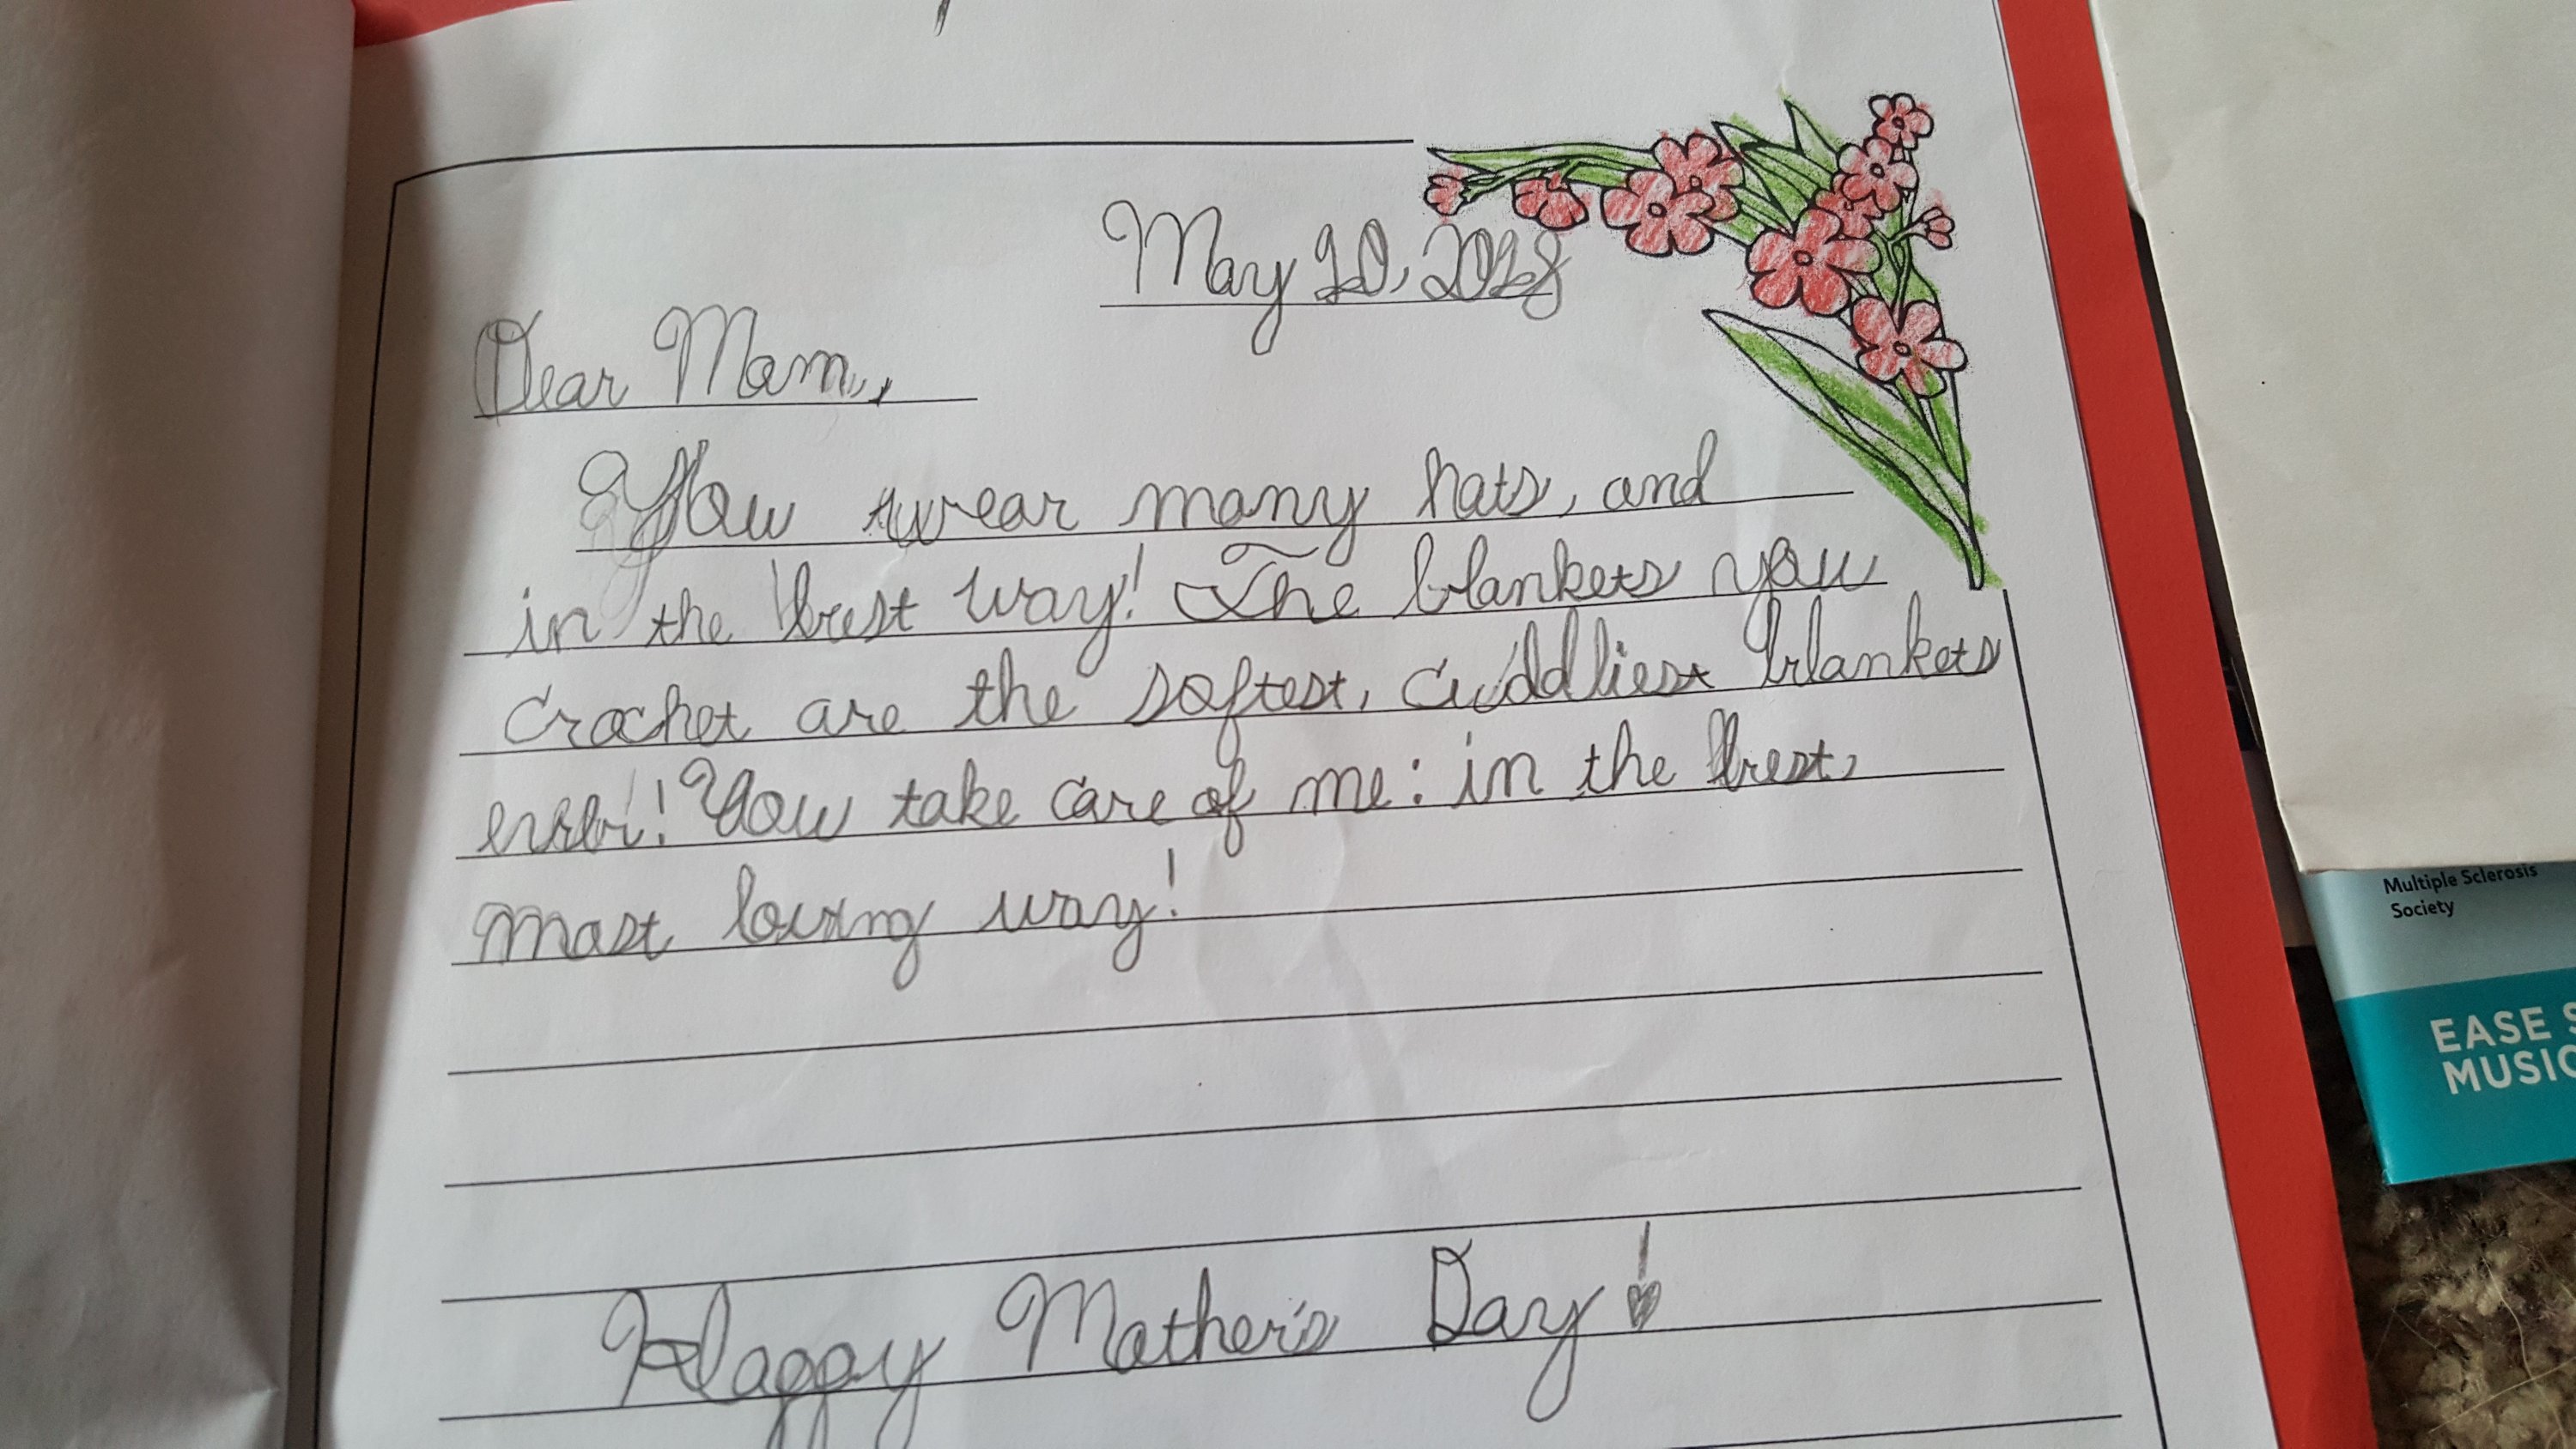 May 10, 2018
Dear Mom,
You wear many hats, and
in the best way! The blankets you
crochet are the softest, cuddliest blankets
ever! You take care of me: in the best,
most loving way!
Happy Mother's Day!
Multiple Sclerosis
Society
EASE S
MUSIC